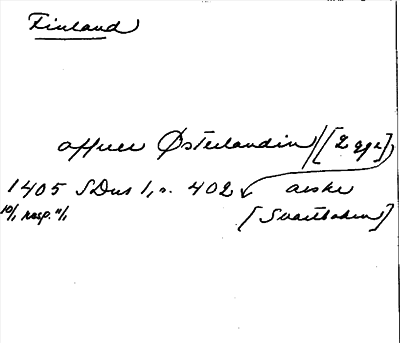 Finland
offuer Østerlandin/[Egge]
1405 SDns 1, n. 402 aeske
10/1 resp. 11/1 [Svartboken]